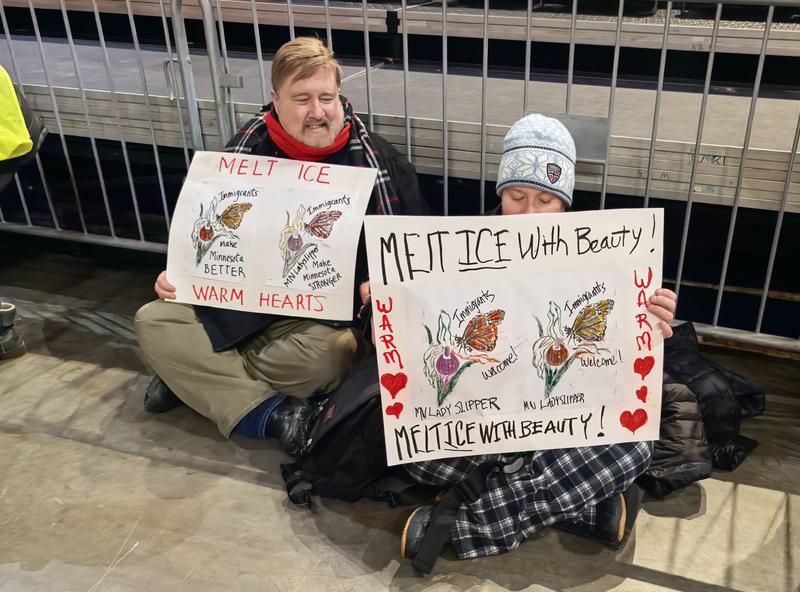 MELT ICE
Immigrants
Make
Minnesota
BETTER
Immigrants
MN Ladyslipper
Make
Minnesota
STRONGER
WARM HEARTS
MELT ICE With Beauty!
WARM
Immigrants
Welcome!
MN LADY SLIPPER
Immigrants
Welcome!
MN LADYSLIPPER
WARM
MELT ICE WITH BEAUTY!